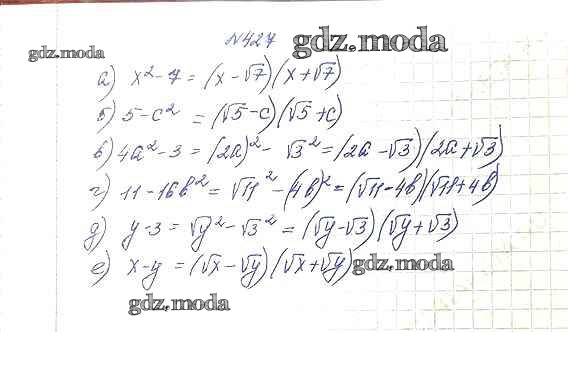 №427
gdz.moda
gdz.moda
а) x² - 7 = (x - √7)(x + √7)
б) 5 - c² = (√5 - c)(√5 + c)
в) 4a² - 3 = (2a)² - √3² = (2a - √3)(2a + √3)
г) 11 - 16b² = √11² - (4b)² = (√11 - 4b)(√11 + 4b)
д) y - 3 = √y² - √3² = (√y - √3)(√y + √3)
е) x - y = (√x - √y)(√x + √y)
gdz.moda
gdz.moda